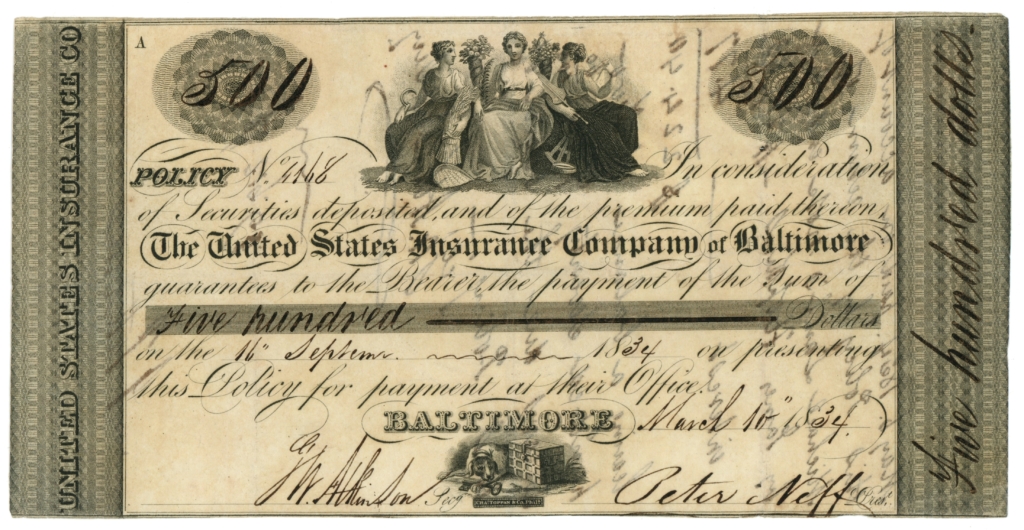 UNITED STATES INSURANCE CO
A
500
500
POLICY No. 2168
In consideration
of Securities deposited, and of the premium paid thereon,
The United States Insurance Company of Baltimore
guarantees to the Bearer, the payment of the Sum of
Five hundred Dollars
on the 16" Septemr. 1834 on presenting
this Policy for payment at their Office.
BALTIMORE March 10" 1834.
Atkinson Secy
Peter Neff Prest.
Five hundred dolls.